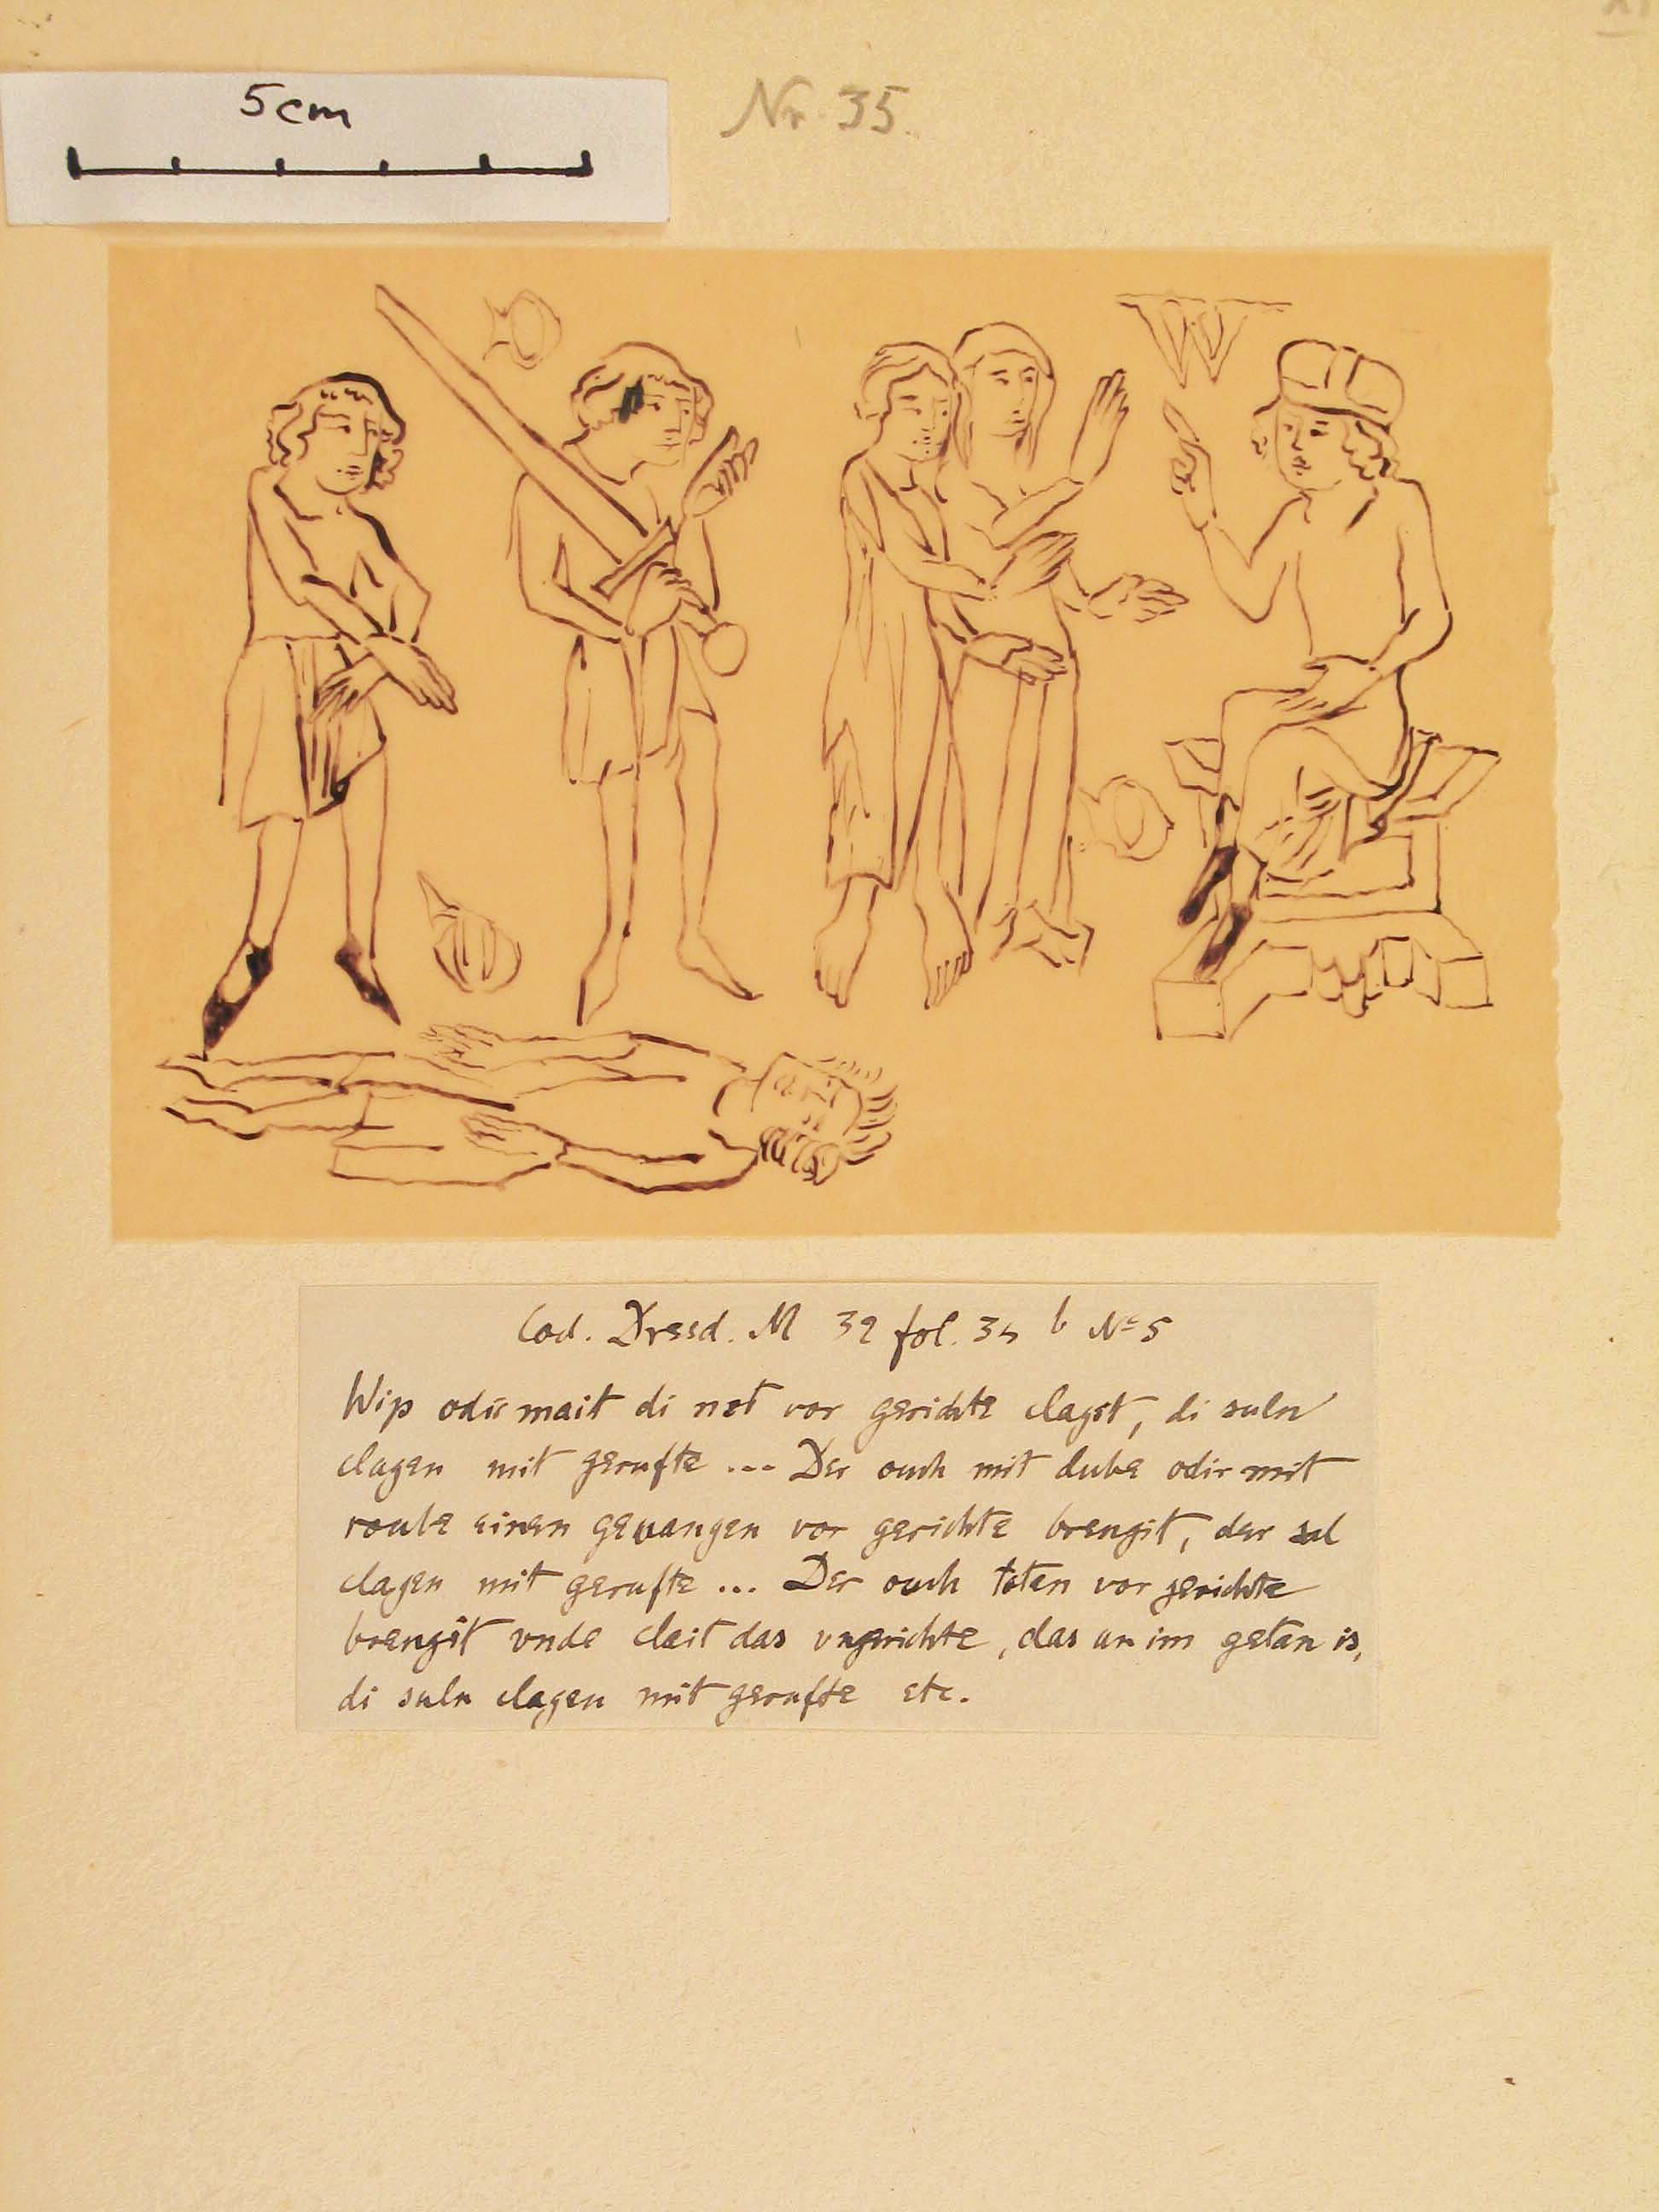 5cm
Nr 35.
W
Cod. Dresd. M 32 fol. 34 b No 5
Wip odir mait di not vor gerichte clagit, di suln
clagen mit gerufte ... Der ouch mit dube odir mit
roube einen gevangen vor gerichte brengit, der sal
clagen mit gerufte ... Der ouch toten vor gerichte
brengit vnde clait das vngerichte, das an im getan is,
di suln clagen mit gerufte etc.